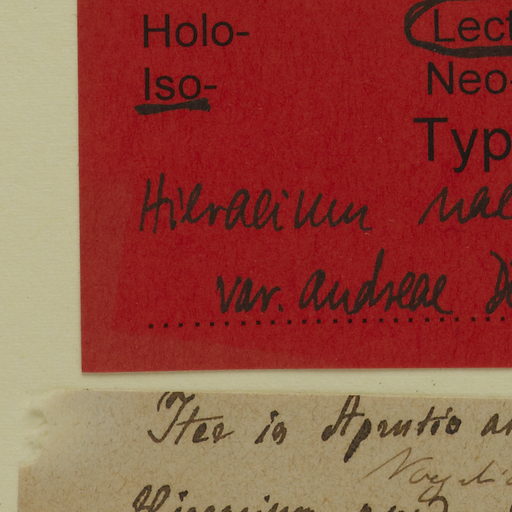 Holo- Lect
Iso- Neo-
Typ
Hieracium nae
var. andreae D
Iter in Aprutio an
Hieracium